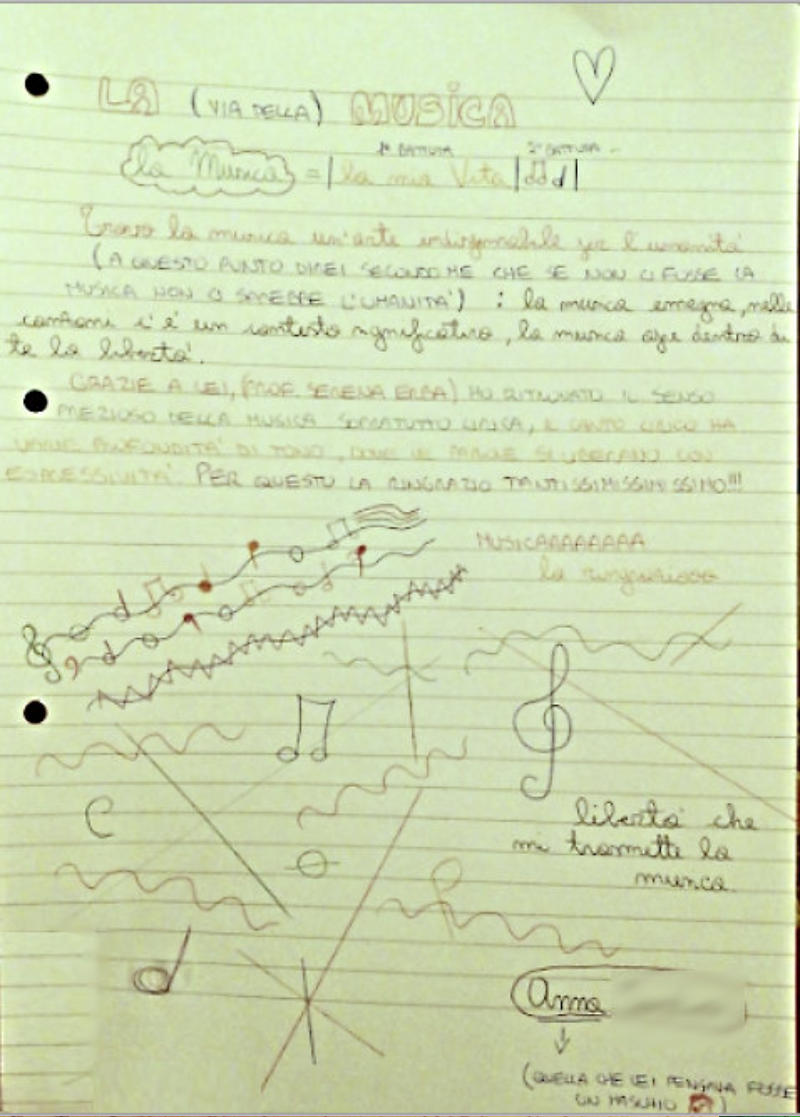 LA (VIA DELLA) MUSICA
1ª BATTUTA 2ª BATTUTA
la Musica = | la mia Vita | |
Trovo la musica un'arte indispensabile per l'umanità
(A QUESTO PUNTO DIREI SECONDO ME CHE SE NON CI FOSSE LA
MUSICA NON CI SAREBBE L'UMANITÀ) : la musica insegna, nelle
canzoni c'è un contesto significativo, la musica apre dentro di
te la libertà.
GRAZIE A LEI, (PROF. SERENA ERBA) HO RITROVATO IL SENSO
PREZIOSO DELLA MUSICA SOPRATUTTO LIRICA, IL CANTO LIRICO HA
VARIE PROFONDITÀ DI TONO, DOVE LE PAROLE SI LIBERANO CON
ESPRESSIVITÀ. PER QUESTO LA RINGRAZIO TANTISSIMISSIMISSIMO!!!
MUSICAAAAAAAA
la
C
libertà che
mi trasmette la
musica.
Anna
(QUELLA CHE LEI PENSAVA FOSSE
UN MASCHIO )